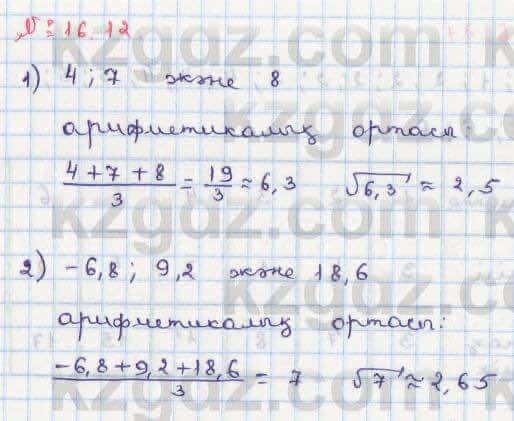 № 16.12
1) 4 ; 7 және 8
арифметикалық ортасы:
(4 + 7 + 8)/3 = 19/3 ≈ 6,3 √6,3 ≈ 2,5
2) -6,8 ; 9,2 және 18,6
арифметикалық ортасы:
(-6,8 + 9,2 + 18,6)/3 = 7 √7 ≈ 2,65
kzgdz.com